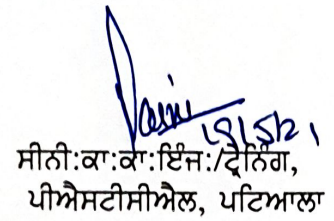 19/5/21
ਸੀਨੀ:ਕਾ:ਕਾ:ਇੰਜ:/ਟ੍ਰੇਨਿੰਗ,
ਪੀਐਸਟੀਸੀਐਲ, ਪਟਿਆਲਾ